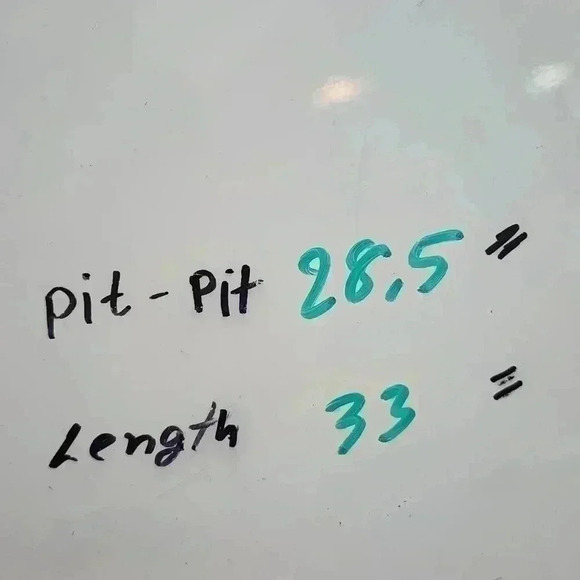 pit - pit 28.5 "
Length 33 "